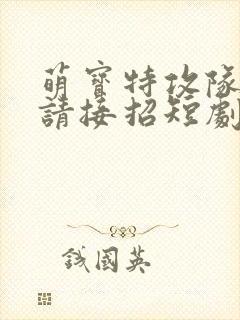 萌寶特攻隊
請接招短劇
錢國英